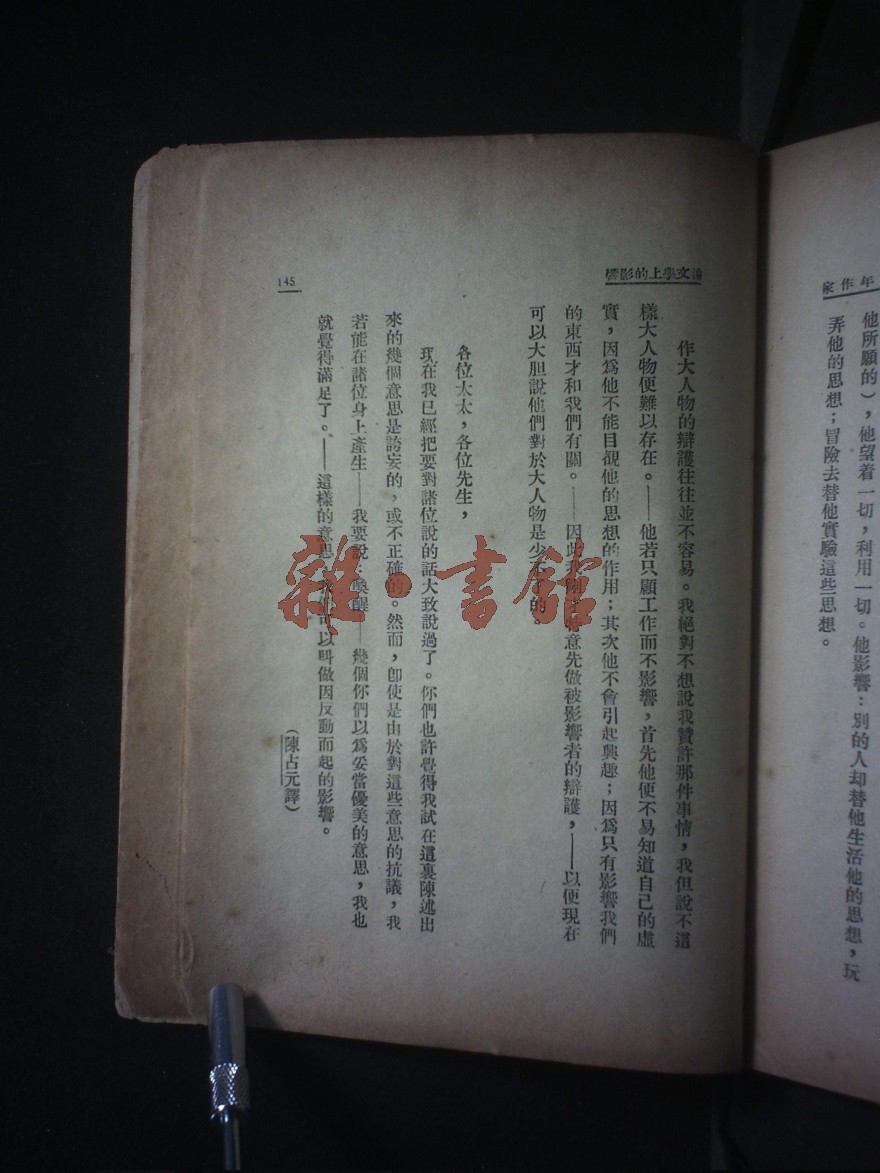 年作家
他所願的），他望着一切，利用一切。他影響：別的人却替他生活他的思想，玩
弄他的思想；冒險去替他實驗這些思想。
論文學上的影響
作大人物的辯護往往並不容易。我絕對不想說我贊許那件事情，我但說不這
樣大人物便難以存在。——他若只顧工作而不影響，首先他便不易知道自己的虛
實，因爲他不能目覩他的思想的作用；其次他不會引起興趣；因爲只有影響我們
的東西才和我們有關。——因此我 意先做被影響者的辯護，——以便現在
可以大胆說他們對於大人物是少不了的。
各位太太，各位先生，
現在我已經把要對諸位說的話大致說過了。你們也許覺得我試在這裏陳述出
來的幾個意思是誇妄的，或不正確的。然而，卽使是由於對這些意思的抗議，我
若能在諸位身上產生——我要說：喚醒——幾個你們以爲妥當優美的意思，我也
就覺得滿足了。——這樣的意思 可以叫做因反動而起的影響。
（陳占元譯）
145
雜·書館